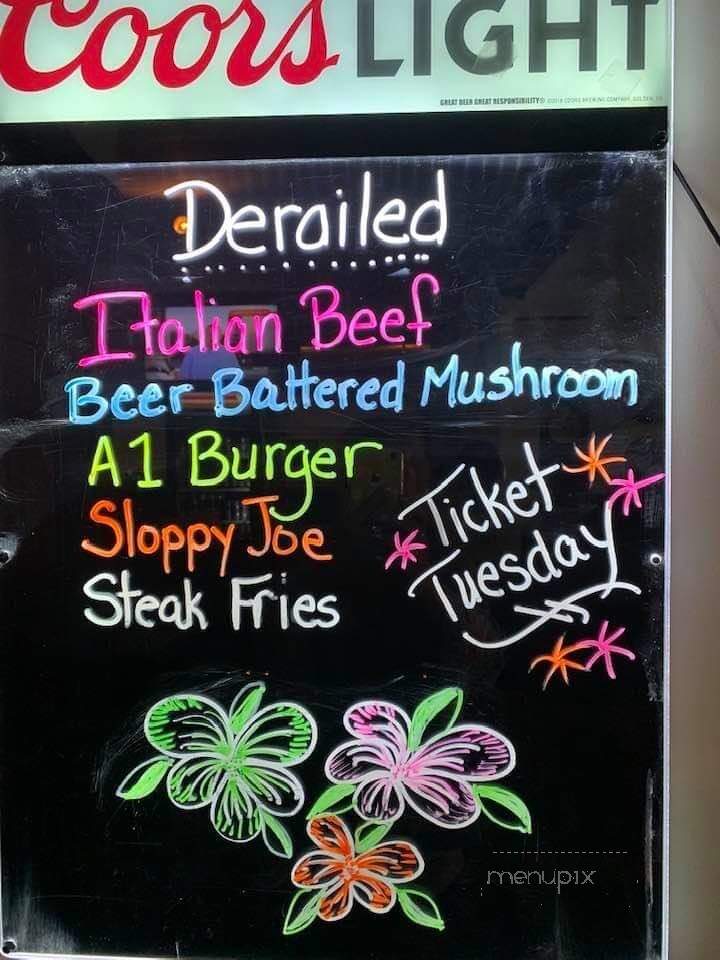 Coors LIGHT
GREAT BEER GREAT RESPONSIBILITY® ©2018 COORS BREWING COMPANY, GOLDEN, CO
Derailed
Italian Beef
Beer Battered Mushroom
A1 Burger
Sloppy Joe
Steak Fries
Ticket
Tuesday
menupix